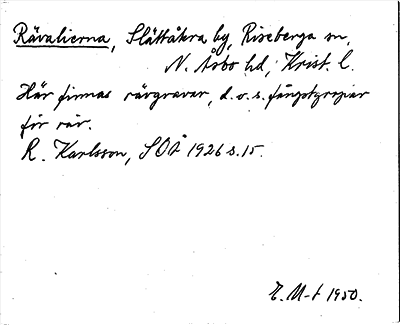 Rävalierna, Slättåkra by, Riseberga sn,
N. Åsbo hd, Krist. l.
Här finnas rävgravar, d.v.s. fångstgropar
för räv.
R. Karlsson, SOÅ 1926 s. 15.
E. M-t 1950.